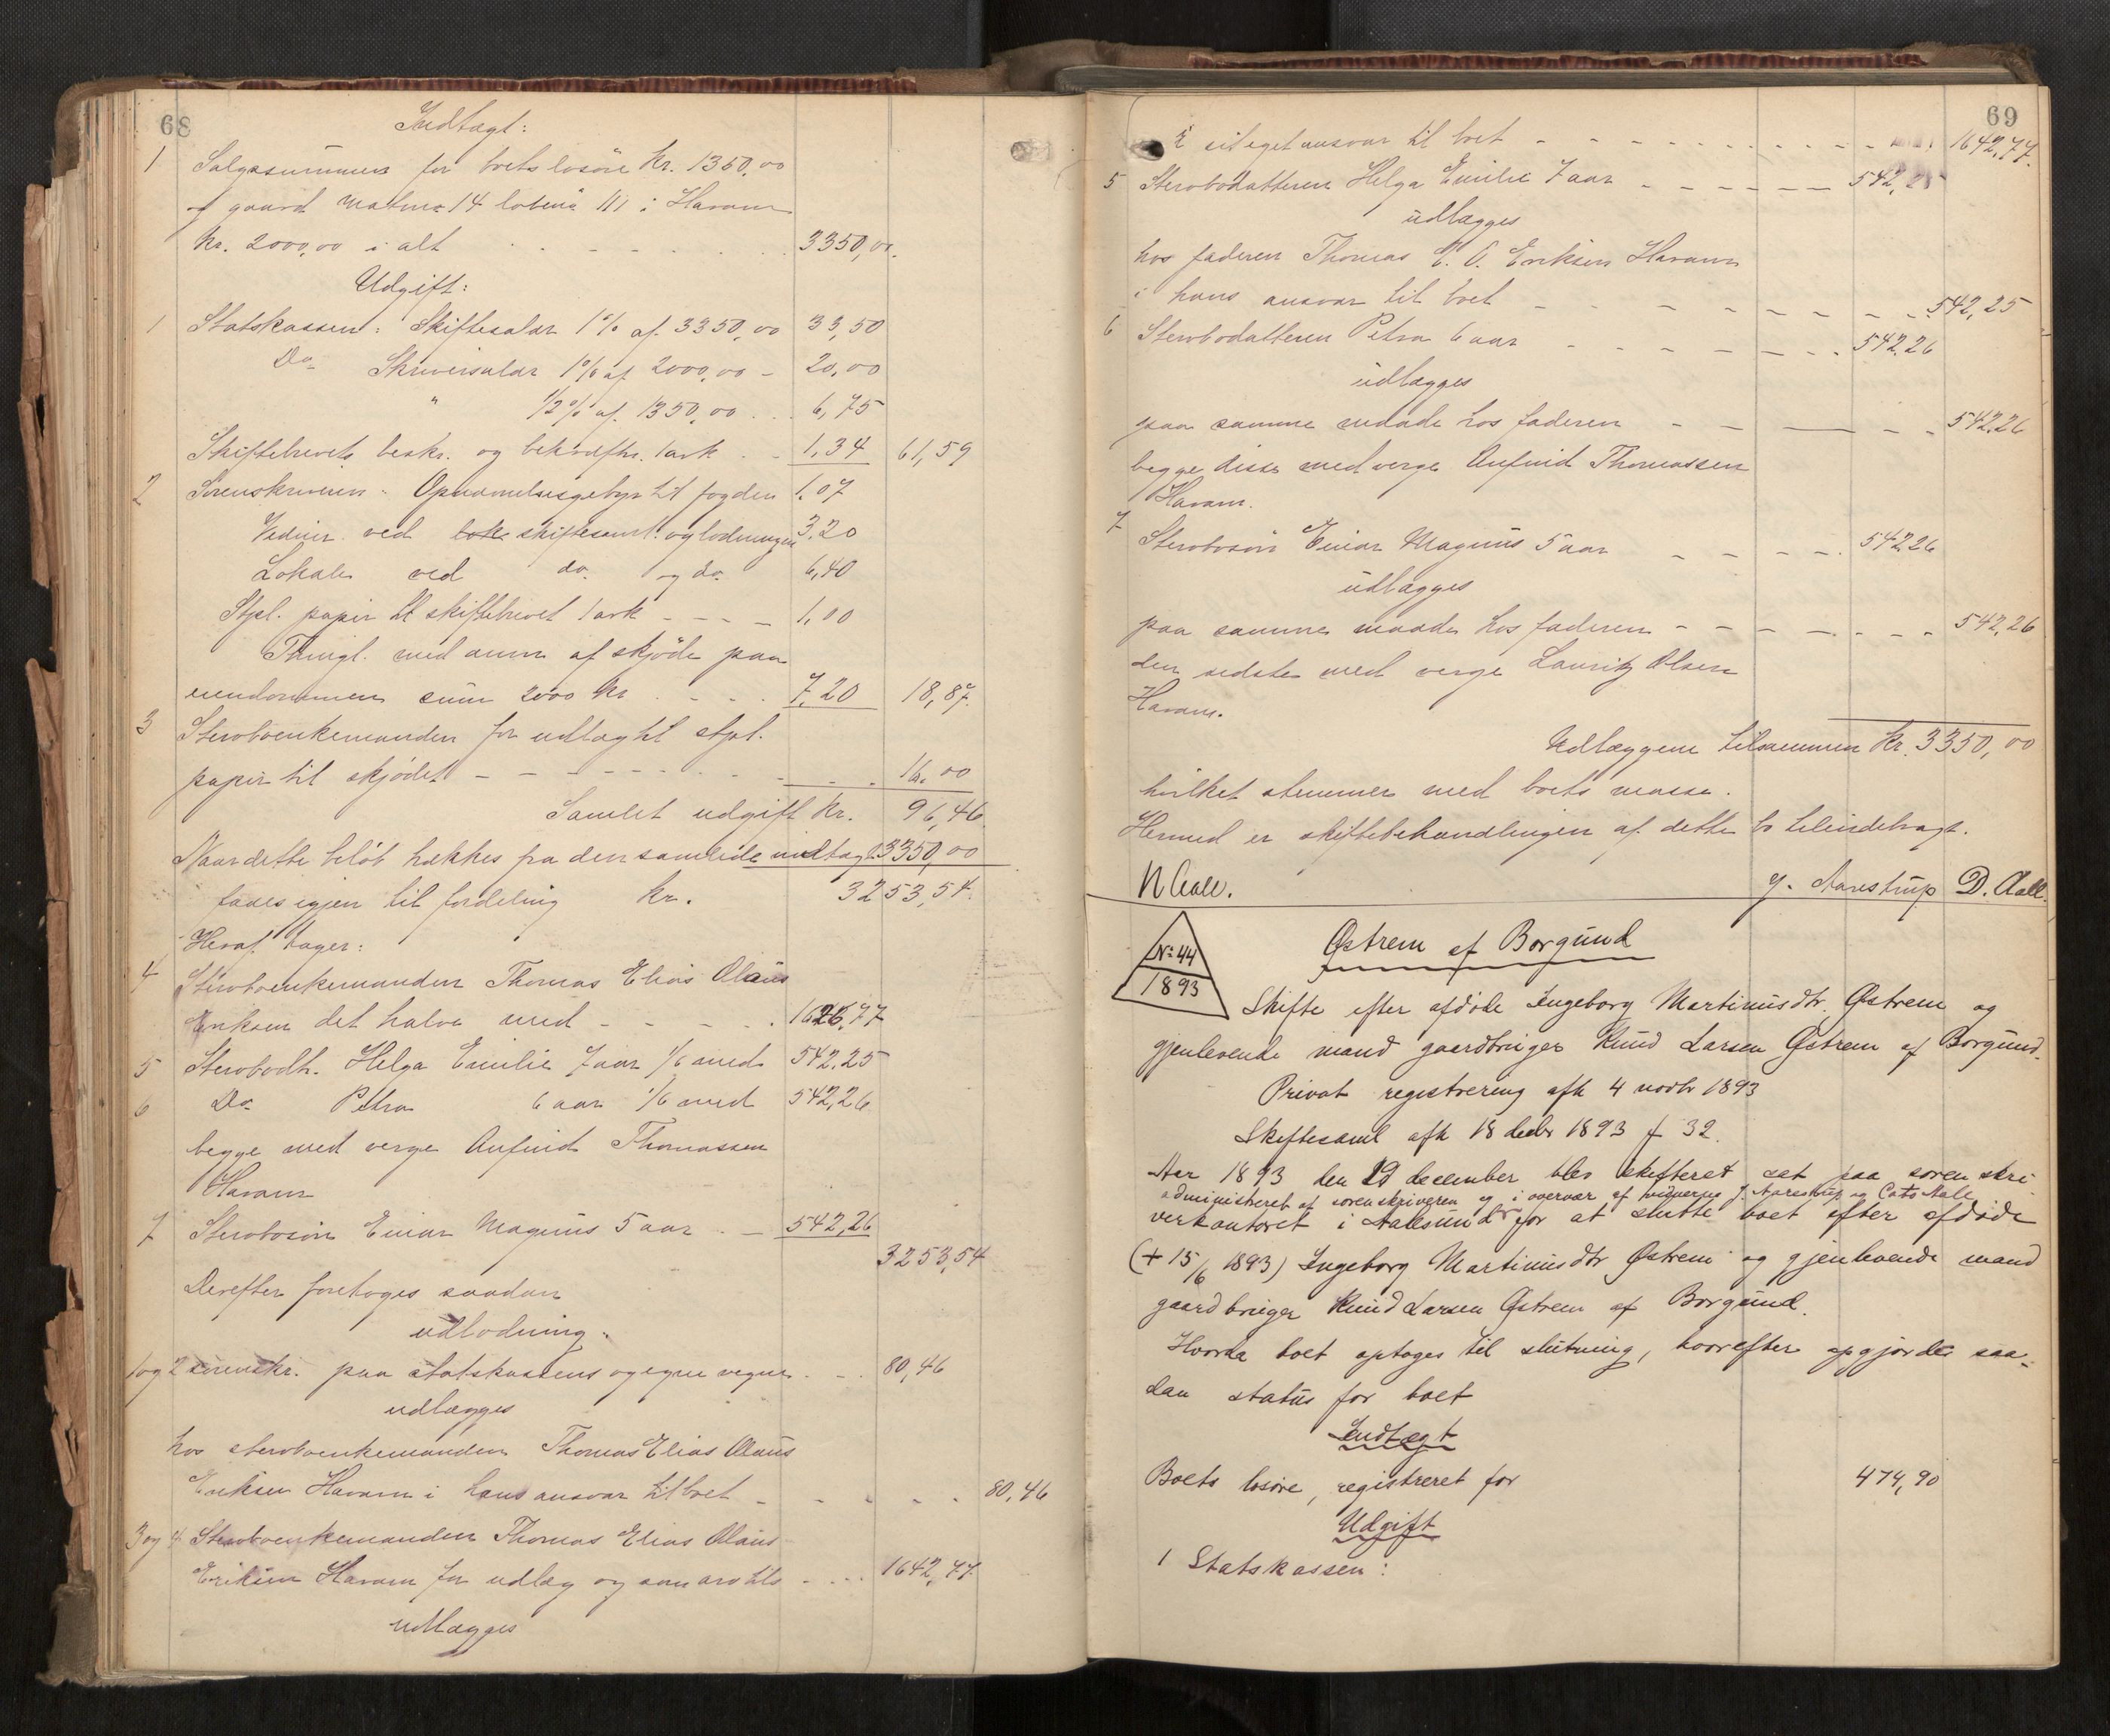 68
Indtægt:
1 Salgssummen for boets løsøre kr. 1350,00
og gaard matrno 14 løbenr 111 i Haram
kr. 2000,00 i alt - - - 3350,00.
Udgift:
1 Statskassen: Skiftesalær 1% af 3350,00 33,50
Do Skriversalær 1% af 2000,00 - 20,00
" 1/2% af 1350,00 . . 6,75
Skiftebrevets beskr. og bekræftn. 1 ark . . 1,34 61,59
2 Sorenskriveren: Opnævnelsesgebyr til fogden 1,07
Vidner ved skiftesaml. og lodningen 3,20
Lokale ved do. og do. 6,40
Stpl. papir til skiftebrevet 1 ark - - - - 1,00
Thingl. med anm af skjøde paa
eiendommen sum 2000 kr . - - . 7,20 18,87.
3 Stervboenkemanden for udlæg til stpl.
papir til skjødet - - - - - - - 16,00
Samlet udgift kr. 96,46.
Naar dette beløb trækkes fra den samlede indtægt 3350,00
faaes igjen til fordeling kr. 3253,54.
Heraf tager:
4 Stervboenkemanden Thomas Elias Olaus
Eriksen det halve med - - - - . 1626,77
5 Stervbodtr. Helga Emilie 7 aar 1/6 med 542,25
6 Do Petra 6 aar 1/6 med 542,26
begge med verge Anfind Thomassen
Haram
7 Stervbosøn Einar Magnus 5 aar . - 542,26
3253,54
Derefter foretoges saadan
udlodning:
1 og 2 sorenskr. paa statskassens og egne vegne . - . 80,46
udlægges
hos stervboenkemanden Thomas Elias Olaus
Eriksen Haram i hans ansvar til boet - - - - . 80,46
3 og 4 Stervboenkemanden Thomas Elias Olaus
Eriksen Haram for udlæg og som arv tils - . . . 1642,77
udlægges
69
i sit eget ansvar til boet - - - - - - - - - - - 1642,77.
5 Stervbodatteren Helga Emilie 7 aar - - - - - - 542,25
udlægges
hos faderen Thomas E. O. Eriksen Haram
i hans ansvar til boet - - - - - - - - . 542,25
6 Stervbodatteren Petra 6 aar - - - - - - . 542,26
udlægges
paa samme maade hos faderen - - - - - 542,26
begge disse med verge Anfind Thomassen
Haram.
7 Stervbosøn Einar Magnus 5 aar - - - - . 542,26
udlægges
paa samme maade hos faderen - - - - - - - - 542,26
den sidste med verge Lauritz Olsen
Haram.
Udlæggene tilsammen kr. 3350,00
hvilket stemmer med boets masse.
Hermed er skiftebehandlingen af dette bo tilendebragt.
N Aall. J. Aarestrup D. Aall.
No 44
1893
Østrem af Borgund
Skifte efter afdøde Ingeborg Martinusdtr. Østrem og
gjenlevende mand gaardbruger Knud Larsen Østrem af Borgund.
Privat registrering afh 4 novbr 1893
Skiftesaml afh 18 decbr 1893 f 32.
Aar 1893 den 19 december blev skifteret sat paa sorenskri-
administreret af sorenskriveren og i overvær af vidnerne J. Aarestrup og Cato Aall
verkontoret i Aalesund for at slutte boet efter afdøde
(+ 15/6 1893) Ingeborg Martinusdtr Østrem og gjenlevende mand
gaardbruger Knud Larsen Østrem af Borgund.
Hvorda boet optoges til slutning, hvorefter opgjordes saa-
dan status for boet
Indtægt
Boets løsøre, registreret for 474,90
Udgift
1 Statskassen: